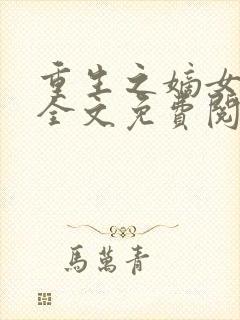 重生之嫡女
全文免費閱
馬萬青